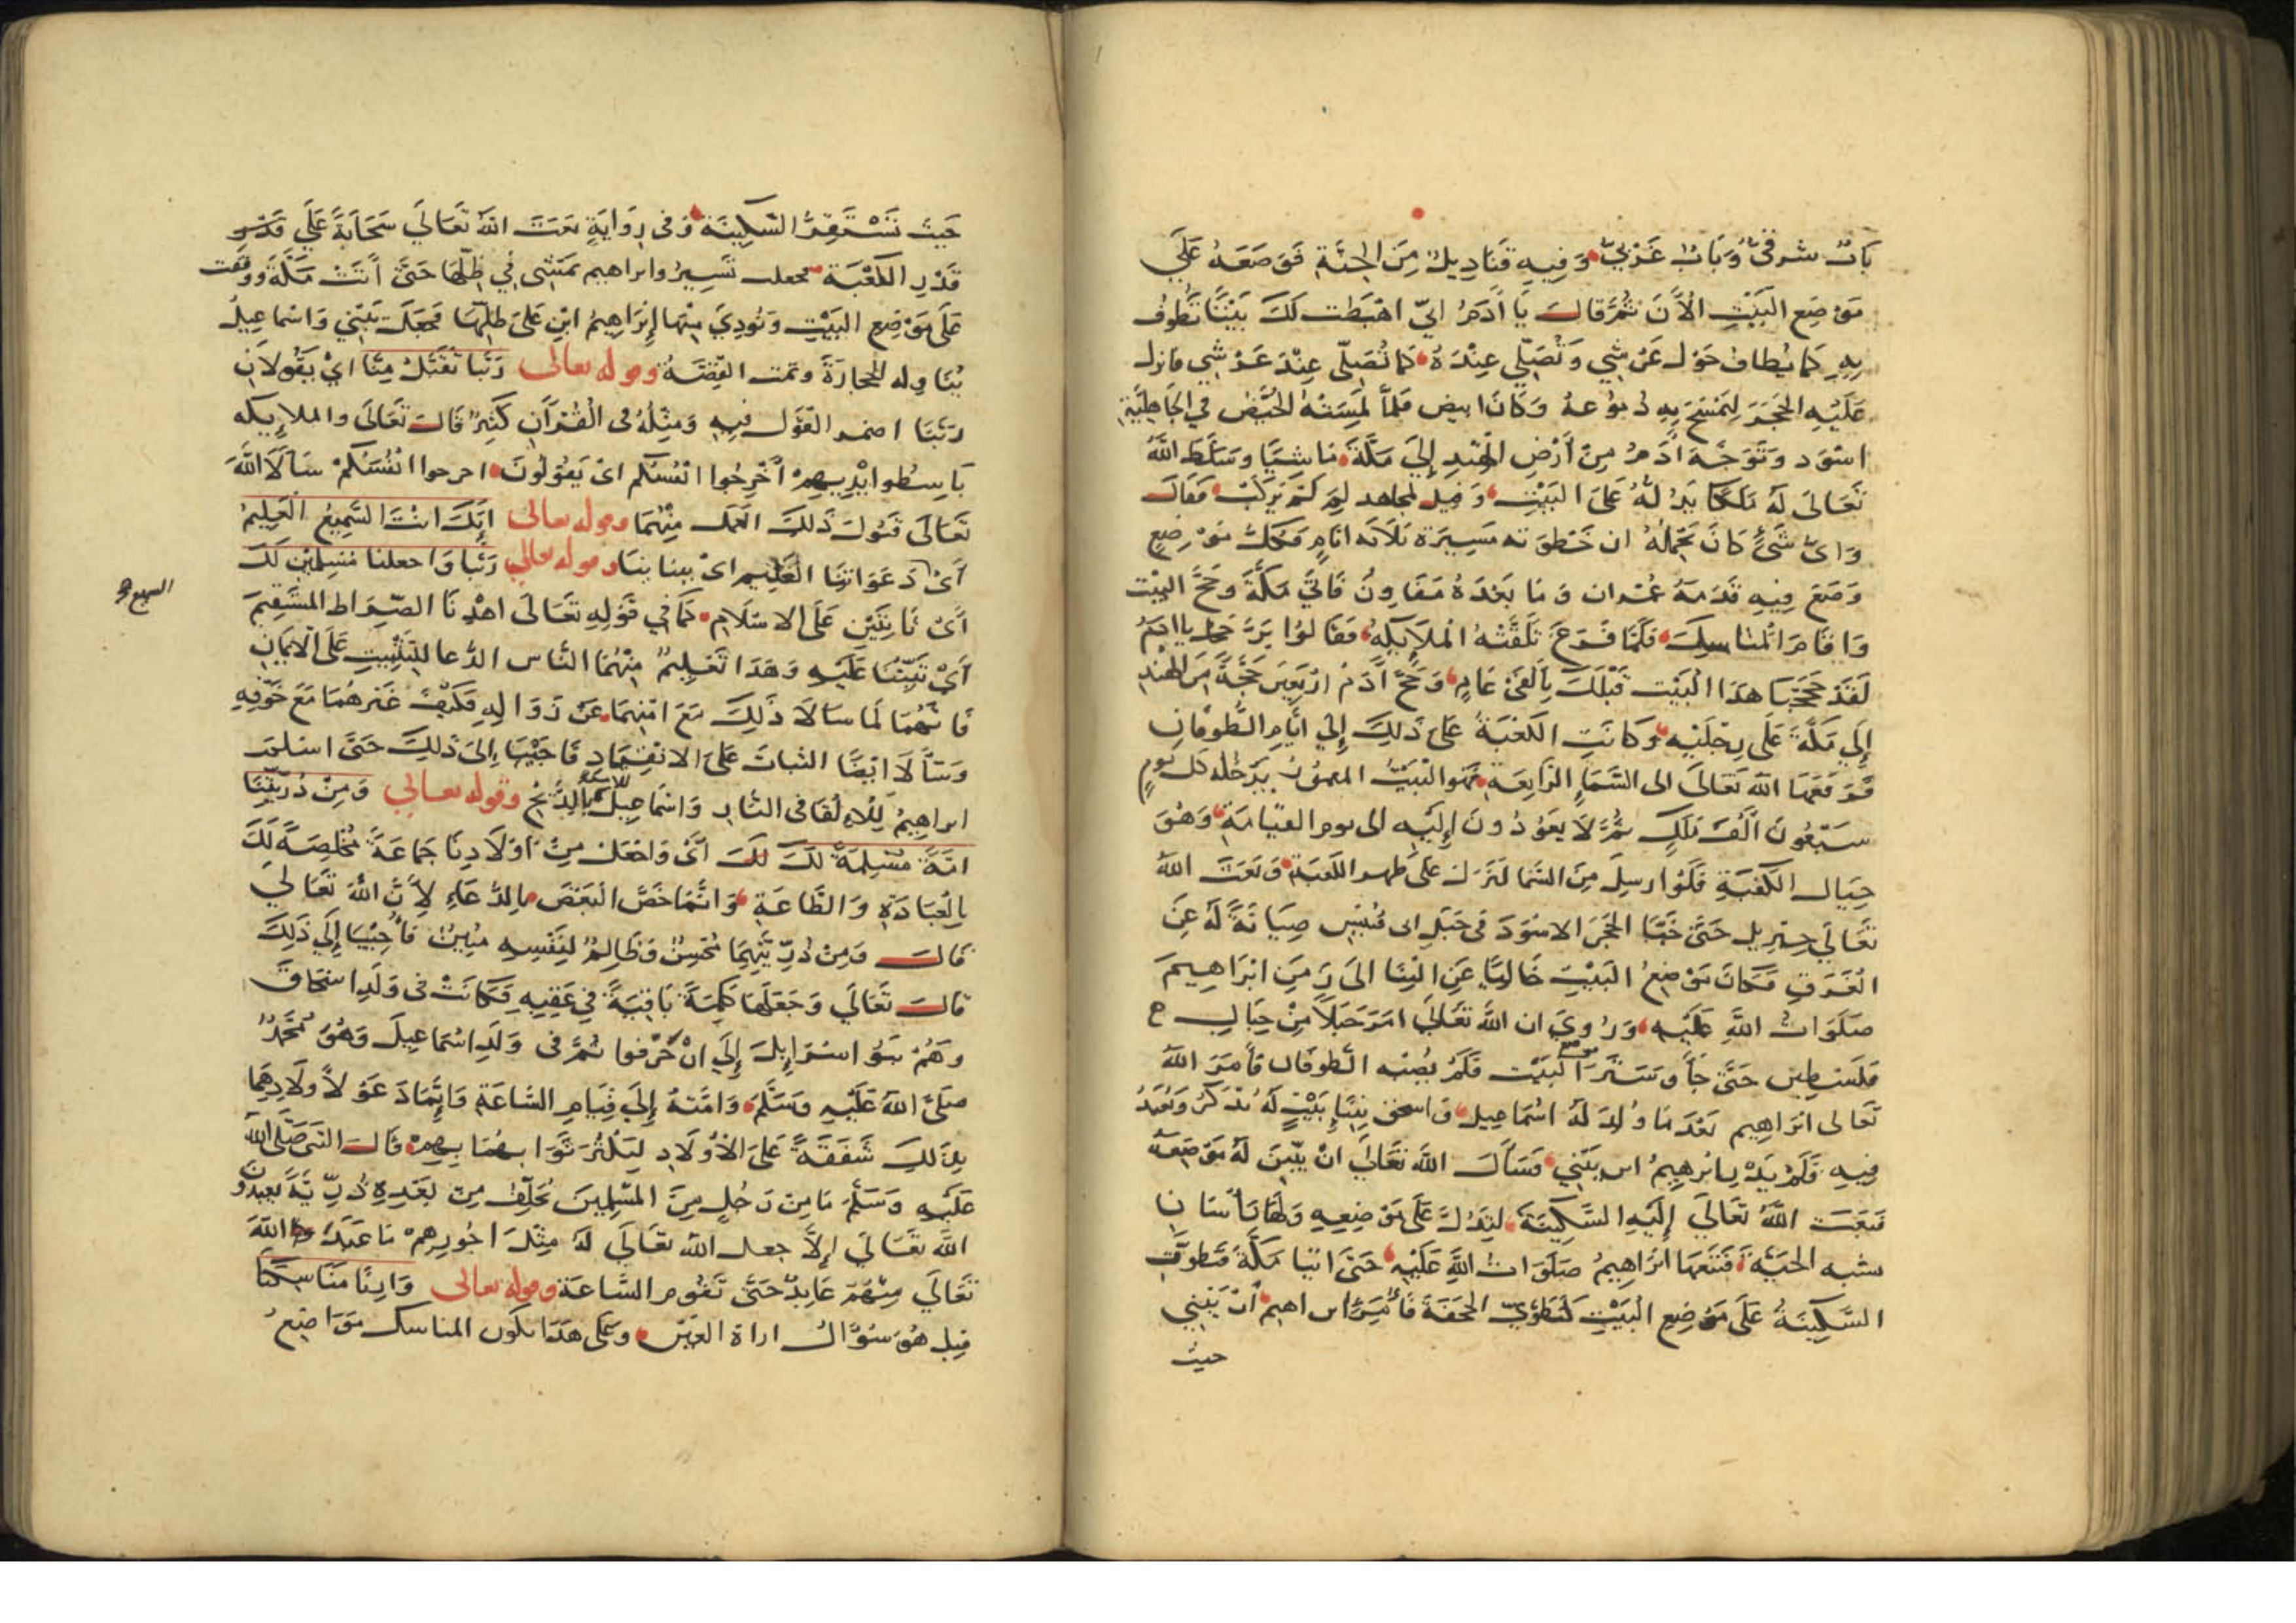 بَابٌ شرقىٌّ وَبَابٌ غَرْبىٌّ وَفِيهِ قَنَادِيلُ مِنَ الجنَّةِ فَوَضَعَهُ عَلَى
مَوْضِعِ البَيْتِ الْآنَ ثُمَّ قالَ يَا آدَمُ انِّي اهْبَطت لَكَ بَيْتًا تَطُوفُ
بِهِ كَمَا يُطَافُ حَوْلَ عَرْشِي وَتُصَلِّي عِنْدَهُ كَمَا تُصَلِّى عِنْدَ عَرْشِي وانزل
عَلَيْهِ الحَجَرَ لِيَمْسَحَ بِهِ دُمُوْعهُ وَكَانَ ابيض فلمَّا لَمَسَتْهُ الحُيَّضُ فِي الجَاهِليَّةِ
اسْوَدَ وَتَوَجَّهَ آدَمُ مِنْ أَرْضِ الهِنْدِ إِلَى مَكَّةَ مَاشِيًا وَسَلَّطَ اللَّهُ
تَعَالَى لَهُ مَلَكًا يَدُ لُّهُ عَلَى البَيْتِ وَقيل لمجاهد لِمَ لَمْ يَرْكَبْ فَقَالَ
وَاىُّ شَىْءٍ كَانَ يَحْمِلُهُ ان خَطْوَته مَسِيرَة ثَلَاثَه ايَّامٍ فَكلُّ مَوْضِعٍ
وَضَعَ فِيهِ قَدَمَهُ عُمْران وَمَا بَعْدَهُ مَفَاوِزُ فَاتَى مَكَّةَ وَحَجَّ البَيْت
وَاقَامَ المَنَاسِكَ فَلَمَّا فَرَغَ تَلَقَّتْهُ المَلَايِكَهُ فَقَالُوا بَرَّ حَجك يا ادَمُ
لَقَدْ حَجَجْنَا هذَا الْبَيْت قَبْلَكَ بِأَلْفَىْ عَامٍ وَحَجَّ آدَمُ ارْبَعِينَ حَجَّةً مِنَ الهِنْدِ
إِلَى مَكَّةَ عَلَى رِجْلَيْهِ وَكَانَتِ الكَعْبَةُ عَلَى ذَلِكَ إِلَى أَيَّامِ الطُّوفَانِ
فَرَفَعَهَا اللَّه تَعَالَى الى السَّمَاءِ الرَّابِعَةِ فهُوَ الْبَيْتُ المعمُورُ يَدْخُلُه كلَّ يَومٍ
سَبْعُونَ أَلْفَ مَلَكٍ ثُمَّ لَا يَعُوْدُونَ إِلَيْهِ الى يوم القيَامَةِ وَهُوَ
حِيَالَ الكَعْبَةِ فَلَوْ ارسِلَ مِنَ السَّمَا لَنَزَلَ عَلَى ظهر الكَعبَة وَبَعَثَ اللهُ
تَعَالَى جِبْرِيل حَتَّى خَبَّا الحَجَرَ الاسْوَدَ فى جَبَلِ ابى قُبَيْسٍ صِيَانَةً لَهُ عَنِ
الغَرَقِ فَكَانَ مَوْضِعُ البَيْتِ خَالِيًا عَنِ البِنَا الَى زَمَنِ ابْرَاهِيمَ
صَلَوَاتُ اللَّهِ عَلَيْهِ وَرُوِيَ ان اللَّه تَعَالَى امَرَ جَبَلاً مِنْ جِبَالِ
فلَسْطِين حَتَّى جَاءَ وَسَتَرَ الْبَيْت فَلَمْ يُصِبْه الطوفَان فَأَمَرَ اللهُ
تَعَالى ابْرَاهِيم بَعْدَ مَا وُلِدَ لَهُ اسْمَاعِيل وَاسحق بِبِنَاءِ بَيْتٍ لَهُ يُذْكَرُ وَيُعْبَدُ
فِيهِ فَلَمْ يَدْرِ ابْرهِيمُ اين يَبْنِي فَسَأَلَ اللَّهَ تَعَالَى انْ يبَيِّنَ لَهُ مَوْضِعَهُ
فَبَعَثَ اللَّهُ تَعَالَى إِلَيْهِ السَّكِينَةَ لِتَدُلَّ عَلَى مَوْضِعِهِ وَلَهَا رَأْسَانِ
شبه الحَيَّةِ فَتَبِعَهَا ابْرَاهِيمُ صَلَوَاتُ اللَّهِ عَلَيْهِ حَتَّى اتيَا مَكَّةَ فَتَطَوَّقَتِ
السَّكِينَةُ عَلَى مَوْضِعِ الْبَيْتِ كَتَطَوِّي الحَجَفَةِ فَأُمِرَ ابراهيم أَنْ يَبْنِي
حيث
حَيْثُ تَسْتَقِرُّ السَّكِينَة وَفى رِوَايَةٍ بَعَثَ اللَّهُ تَعَالَى سَحَابَةً عَلَى قَدْرِ
قَدْرِ الكَعْبَة فجعلت تَسِيرُ وابراهيم يَمْشِى فِي ظِلِّهَا حَتَّى أَتَتْ مَكَّةَ ووقفت
عَلَى مَوْضِعِ البَيْتِ وَنُودِيَ مِنْهَا إِبْرَاهِيمُ ابْنِ عَلَى ظِلِّهَا فَجَعَلَ يَبْنِي وَاسْمَاعِيلُ
يُنَاوِله الحِجَارَةَ وتمت القِصَّة وقوله تعالى رَبَّنَا تَقَبَّلْ مِنَّا ايْ يَقُولَانِ
رَبَّنَا اضمر القَوْل فِيهِ وَمِثْلُهُ فى الْقُرْآنِ كَثِيرٌ قَالَ تَعَالَى والملايكه
بَاسِطُوا ايْدِيهِمْ أَخْرِجُوا انْفُسَكُم اىْ يَقُولُونَ اخرجوا انْفُسَكُمْ سَأَلَا اللَّهَ
تَعَالَى قَبُولَ ذَلِكَ العَمَلِ مِنْهُمَا وقوله تعالى إِنَّكَ انْتَ السَّمِيعُ العَلِيمُ
أَىْ دَعَوَاتِنَا العَلِيم اىْ بِنيَّاتِنَا وقوله تعالى رَبَّنَا وَاجعلنا مُسْلِمَيْنِ لَكَ
أَىْ ثَابِتَيْنِ عَلَى الاسْلَامِ كَمَا فِي قَوْلِهِ تَعَالَى اهْدِنَا الصِّرَاط المُسْتَقِيمَ
أَيْ ثَبِّتْنَا عَلَيْهِ وَهَذَا تَعْلِيمٌ مِنْهُمَا النَّاس الدُّعَا للتَّثْبِيتِ عَلَى الْايمَانِ
فَإِنَّهُمَا لَمَا سَالَا ذَلِكَ مَعَ امْنِهِمَا عَنْ زَوَالِهِ فَكَيْفَ غَيْرهُمَا مَعَ خَوْفِهِ
وَسَأَلَا ايْضًا الثَّبَاتَ عَلَى الانْقِيَادِ فَاجِيْبَا إِلَى ذَلِكَ حَتَّى اسْلَمَ
ابراهِيمُ لِلْالْقَا فى النَّارِ وَاسْمَاعِيلُ لِلذَّبْحِ وقوله تعالى وَمِنْ ذُرِّيَّتِنَا
امَّةً مُسْلِمَةً لَكَ أَىْ وَاجْعَلْ مِنْ اوْلَادِنَا جَمَاعَةً مُخْلِصَةً لَكَ
بِالْعِبَادَةِ وَالطَّاعَةِ وَانَّمَا خَصَّ الْبَعْضَ بالدُّعَاءِ لِأَنَّ اللَّهَ تَعَالَى
قالَ وَمِنْ ذُرِّيَّتِهِمَا مُحْسِنٌ وَظَالِمٌ لِنَفْسِهِ مُبِينٌ فَأُجِيْبَا إِلَى ذَلِكَ
قَالَ تَعَالَى وَجَعَلَهَا كَلِمَةً بَاقِيَةً فِي عَقِبِهِ فَكَانَتْ فى وَلَدِ اسْحَاقَ
وَهُمْ بَنُو اسْرَايِلَ إِلَى انْ حَرَّفُوا ثُمَّ فى وَلَدِ اسْمَاعِيلَ وَهُوَ مُحَمَّدٌ
صَلَّى اللَّهُ عَلَيْهِ وَسَلَّمَ وَامَّتهُ إِلَى قِيَامِ السَّاعَةِ وَإِنَّمَا دَعَوْا لِأَوْلَادِهِمَا
بِذَلِكَ شَفَقَةً عَلَى الْأَوْلَادِ لِيَكْثُرَ ثَوَابهُمَا بِهِمْ قَالَ النَّبِي صَلَّى اللَّه
عَلَيْهِ وَسَلَّمَ مَا مِنْ رَجُلٍ مِنَ المُسْلِمِينَ يُخَلِّفُ مِنْ بَعْدِهِ ذُرِّيَّةً يَعبدُونَ
اللَّهَ تَعَالَى إِلَّا جعل اللَّه تَعَالَى لَهُ مِثْلَ اجُورِهِمْ مَا عَبَدَ اللَّهَ
تَعَالَى مِنْهُمْ عَابِدٌ حَتَّى تَقُوم السَّاعَة وقوله تعالى وَارِنَا مَنَاسِكَنَا
قيل هُوَ سُؤَالُ اراة العَيْن وَعَلى هَذَا يكُون المناسك مَوَاضِعُ